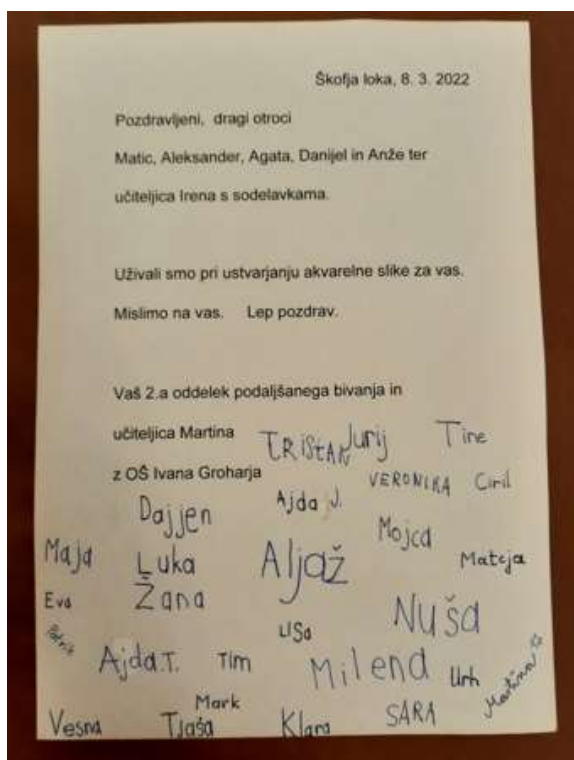 Škofja loka, 8. 3. 2022
Pozdravljeni, dragi otroci
Matic, Aleksander, Agata, Danijel in Anže ter
učiteljica Irena s sodelavkama.
Uživali smo pri ustvarjanju akvarelne slike za vas.
Mislimo na vas. Lep pozdrav.
Vaš 2.a oddelek podaljšanega bivanja in
učiteljica Martina
z OŠ Ivana Groharja
TRiStAN Jurij Tine
VERONIKA Ciril
Dajjen Ajda J.
Mojca
Maja Luka Aljaž Mateja
Eva Žana
Nuša
Patrik LISa
Ajda T. TIm Milena Urh Martina
Mark
Vesna Tjaša Klara SARA